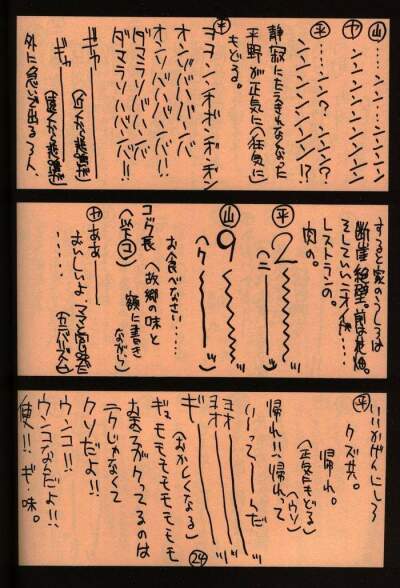 山 …ン…ンーンンン
ヤ ンンンンンンンン
平 …ン？ンンン？
ンンンンンンン!?
静寂にたえきれなくなった
平野が正気に(狂気に)
もどる。
平 ヨヨンンチボンヂンヂン
オンゾババババ
オンゾババンバ!!
ダマラソババンバ
ダマラソババンバ!!
ギャ――
ギャ――
外に急いで出る3人、
すると家のうしろは
断崖絶壁。前はお花畑。
そしていいニオイが…
レストランの。
肉の。
平 2
(ニ
山 9
(ク
お食べなさい……
コック長(故郷の味と
額に書き
ながら)
ヤ ああ――
おいしいよ、ママン
……
平 いいかげんにしろ
クズ共。
帰れ。
(正気にもどる)
(ウソ)
帰れ!!帰れって
い―って―んだ
ヨオ――
ヨオ――
ギ――
(おかしくなる)
ギュモモモモモモモ
お前らがクってるのは
ニクじゃなくて
クソだよ!!
ウンコ!!
ウンコなんだよ!!
便!!ギ味。
24